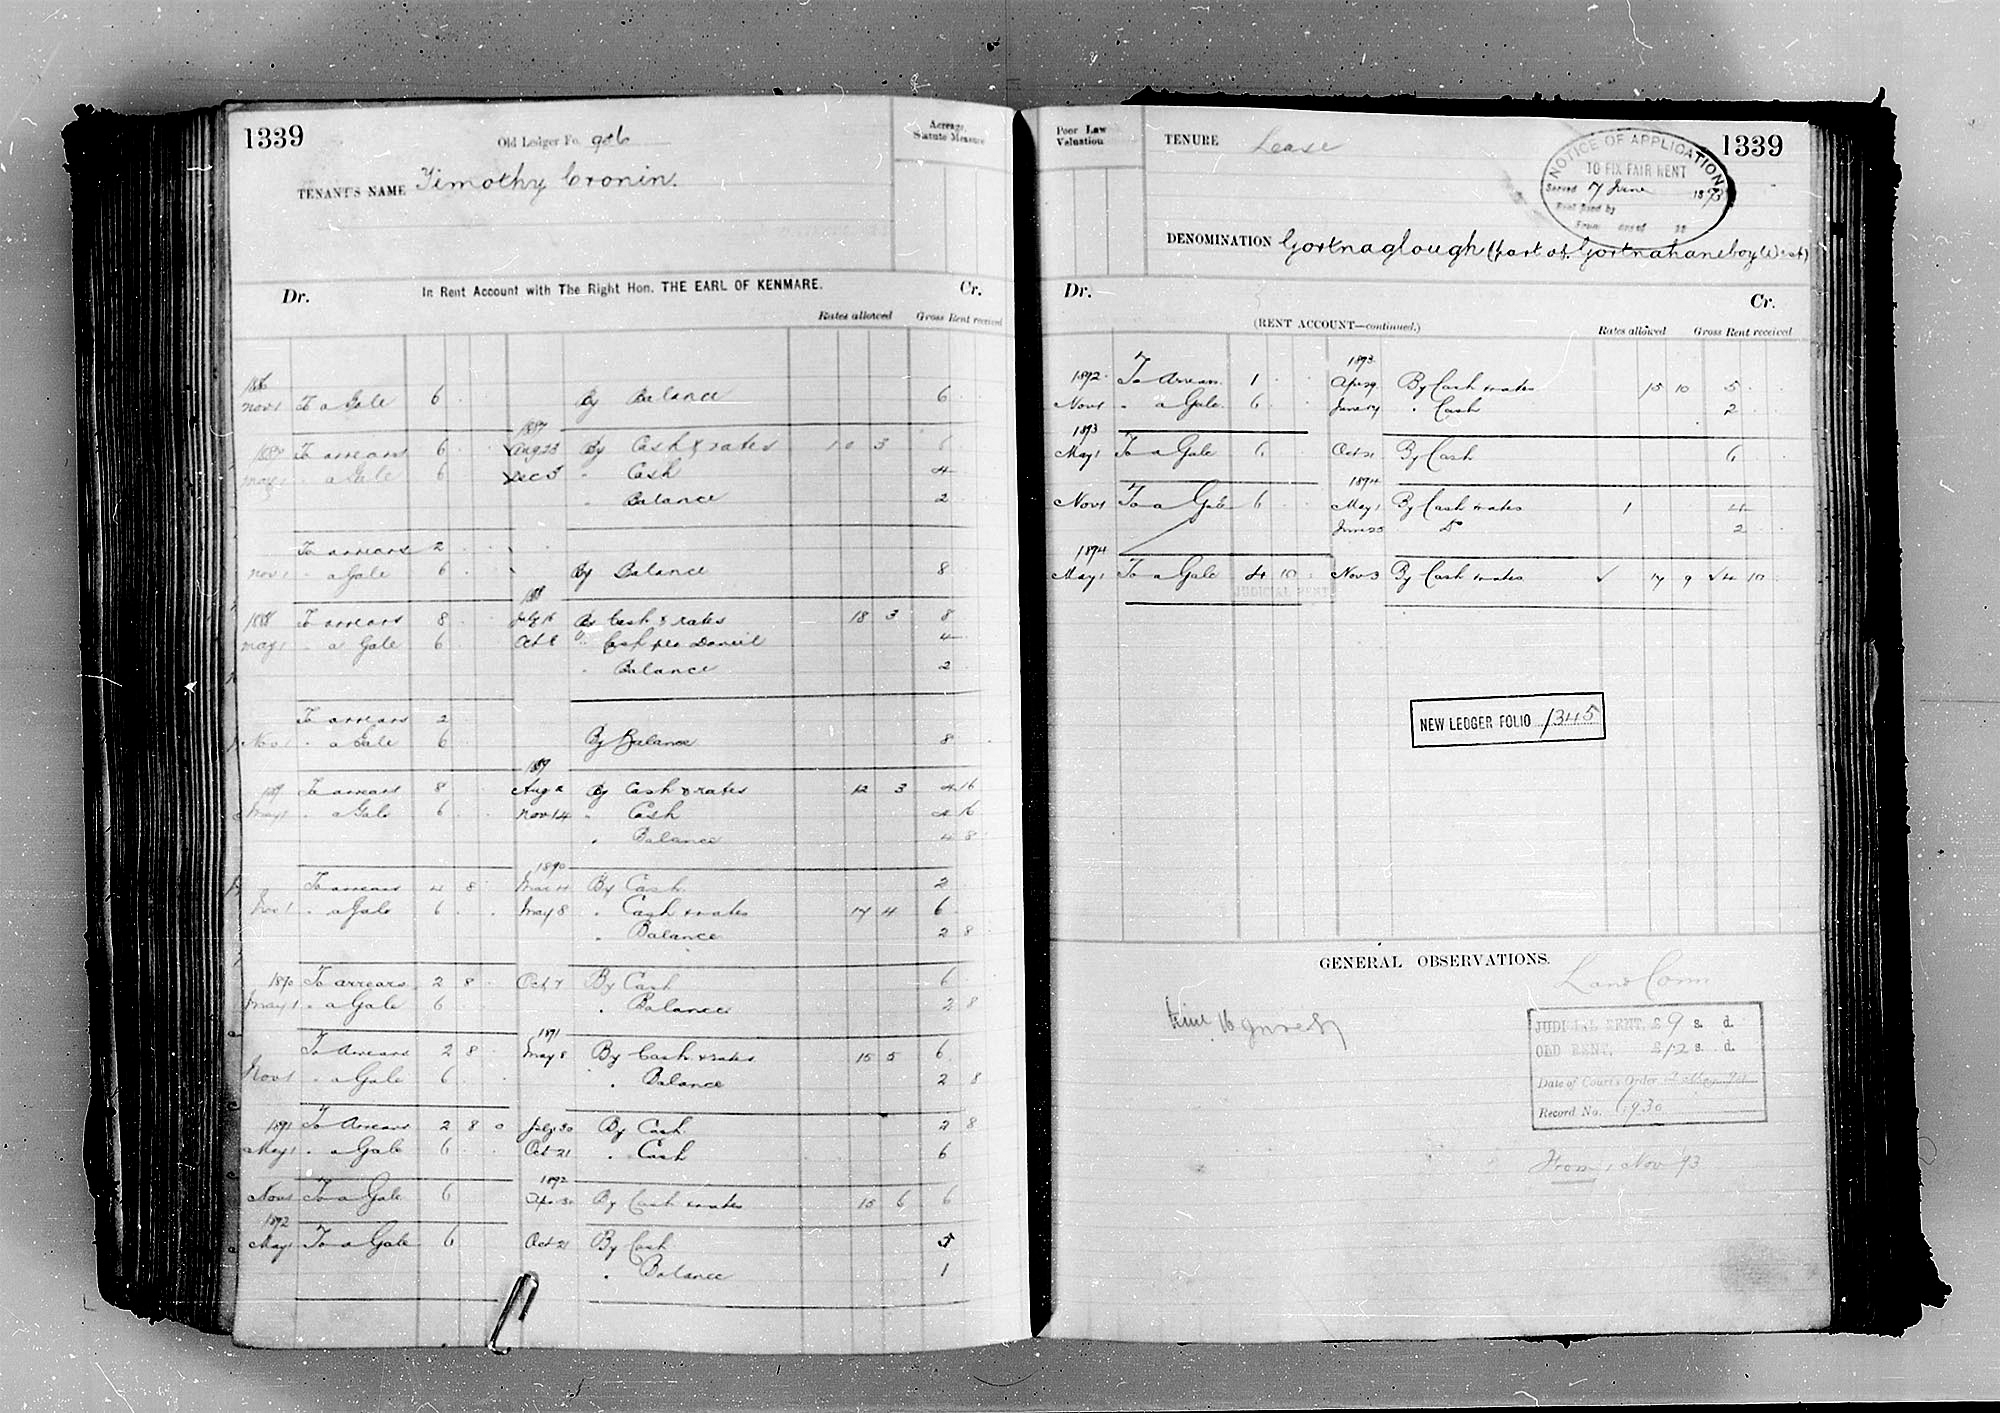 1339
Old Ledger Fo. 906
Acreage, Statute Measure
TENANT'S NAME Timothy Cronin.
Dr. In Rent Account with The Right Hon. THE EARL OF KENMARE. Cr.
Rates allowed Gross Rent received
1886
Nov 1 To a Gale 6 By Balance 6
1887
1887 To arrears 6 Aug 23 By Cash & rates 10 3 6
May 1 " a Gale 6 Dec 5 " Cash 4
" Balance 2
To arrears 2
Nov 1 " a Gale 6 By Balance 8
1888
1888 To arrears 8 July 16 By Cash & rates 18 3 8
May 1 " a Gale 6 Oct 8 " Cash per Daniel 4
" Balance 2
To arrears 2
Nov 1 " a Gale 6 By Balance 8
1889
1889 To arrears 8 Aug 2 By Cash & rates 12 3 4 16
May 1 " a Gale 6 Nov 14 " Cash 4 16
" Balance 4 8
1890
To arrears 4 8 Mar 4 By Cash 2
Nov 1 " a Gale 6 May 8 " Cash & rates 17 4 6
" Balance 2 8
1890 To arrears 2 8 Oct 7 By Cash 6
May 1 " a Gale 6 " Balance 2 8
1891
To Arrears 2 8 May 8 By Cash & rates 15 5 6
Nov 1 " a Gale 6 " Balance 2 8
1891 To Arrears 2 8 0 July 30 By Cash 2 8
May 1 " a Gale 6 Oct 21 " Cash 6
1892
Nov 1 To a Gale 6 Apr 30 By Cash & rates 15 6 6
1892
May 1 To a Gale 6 Oct 21 By Cash 5
" Balance 1
Poor Law Valuation
TENURE Lease
1339
NOTICE OF APPLICATION
TO FIX FAIR RENT
Served 17 June 1893
Rent paid by
From
DENOMINATION Gortnaglough (part of Gortnahaneboy West)
Dr. Cr.
(RENT ACCOUNT—continued.) Rates allowed Gross Rent received
1893
1892 To Arrears 1 Apr 29 By Cash & rates 15 10 5
Nov 1 " a Gale 6 June 17 " Cash 2
1893
May 1 To a Gale 6 Oct 21 By Cash 6
1894
Nov 1 To a Gale 6 May 1 By Cash & rates 1 4
June 25 Do 2
1894
May 1 To a Gale 4 10 Nov 3 By Cash & rates 17 9 4 10
JUDICIAL RENT
NEW LEDGER FOLIO 1345
GENERAL OBSERVATIONS.
Land Comm
JUDICIAL RENT, £ 9 s. d.
OLD RENT, £ 12 s. d.
Date of Court's Order
Record No. 1930
From 1 Nov 93